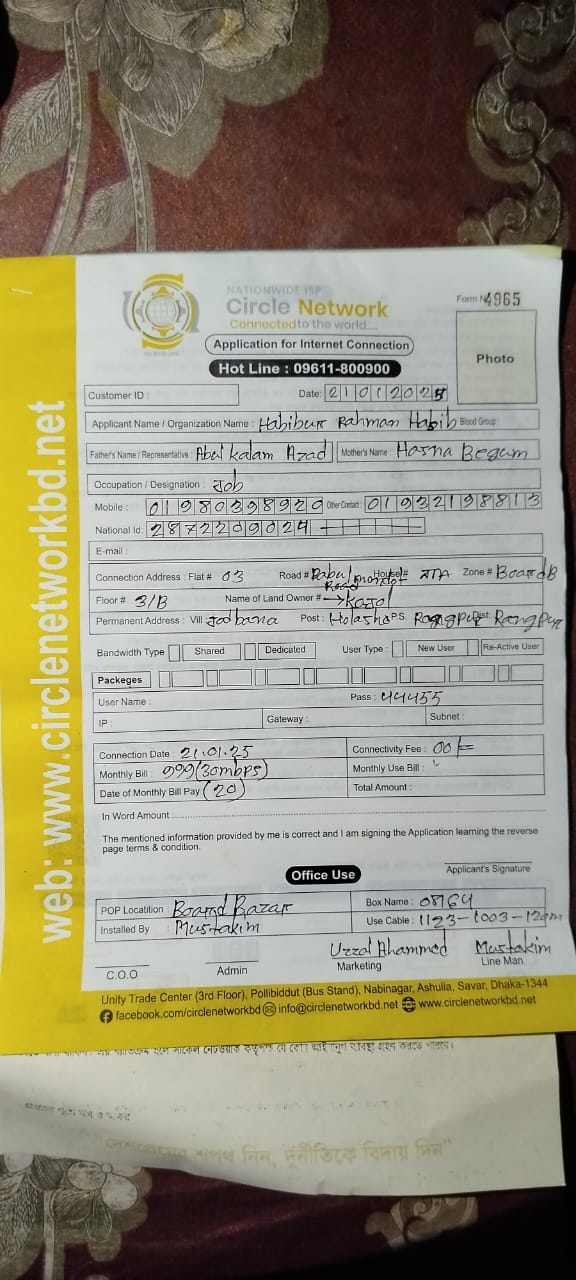 NATIONWIDE ISP
Circle Network
Connected to the world....
Form N 4965
Application for Internet Connection
Photo
Hot Line : 09611-800900
Customer ID :
Date: 21012025
Applicant Name / Organization Name : Habibur Rahman Habib Blood Group
Father's Name / Representative : Abul Kalam Azad Mother's Name : Hasna Begum
Occupation / Designation : Job
Mobile : 01980398920 Other Contact : 01932198813
National Id: 2872209024
E-mail :
Connection Address : Flat # 03 Road # Babul mondol Road House# Zone # Board B
Floor # 3/B Name of Land Owner # → Kajol
Permanent Address : Vill Post : P.S Dist Rangpur
Bandwidth Type Shared Dedicated User Type : New User Re-Active User
Packeges
User Name : Pass : 44455
IP : Gateway : Subnet :
Connection Date : 21.01.25 Connectivity Fee : 00/=
Monthly Bill : 999 (30mbps) Monthly Use Bill :
Date of Monthly Bill Pay (20) Total Amount :
In Word Amount :
The mentioned information provided by me is correct and I am signing the Application learning the reverse
page terms & condition.
Applicant's Signature
Office Use
POP Locatition : Board Bazar Box Name : 08164
Installed By : Mustakim Use Cable : 1123-1003-120m
Uzzal Ahammed Mustakim
C.O.O Admin Marketing Line Man
Unity Trade Center (3rd Floor), Pollibiddut (Bus Stand), Nabinagar, Ashulia, Savar, Dhaka-1344
facebook.com/circlenetworkbd info@circlenetworkbd.net www.circlenetworkbd.net
web: www.circlenetworkbd.net
"দেশপ্রেমের শপথ নিন, দুর্নীতিকে বিদায় দিন"